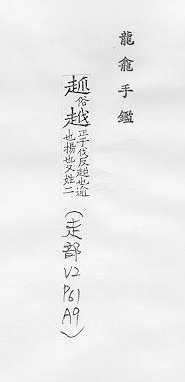 龍龕手鑑
俗越正于伐反超也逾
也揚也又姓二
(走部V2P61A9)